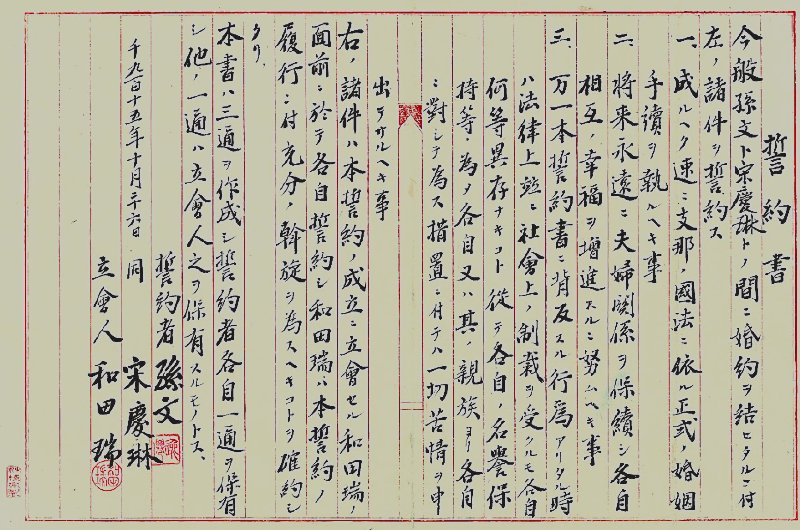 誓約書
今般孫文ト宋慶琳トノ間ニ婚約ヲ結ヒタルニ付
左ノ諸件ヲ誓約ス
一、成ルヘク速ニ支那ノ國法ニ依ル正式ノ婚姻
手續ヲ執ルヘキ事
二、將来永遠ニ夫婦関係ヲ保續シ各自
相互ノ幸福ヲ増進スルニ努ムヘキ事
三、万一本誓約書ニ背反スル行為アリタル時
ハ法律上並ニ社會上ノ制裁ヲ受クルモ各自
何等異存ナキコト從テ各自ノ名譽保
持等ノ為メ各自又ハ其ノ親族ヨリ各自
ニ對シテ為ス措置ニ付テハ一切苦情ヲ申
出テサルヘキ事
右ノ諸件ハ本誓約ノ成立ニ立會セル和田瑞ノ
面前ニ於テ各自誓約シ和田瑞ハ本誓約ノ
履行ニ付充分ノ斡旋ヲ為スヘキコトヲ確約シ
タリ、
本書ハ三通ヲ作成シ誓約者各自一通ヲ保有
シ他ノ一通ハ立會人之ヲ保有スルモノトス、
千九百十五年十月二十六日
誓約者 孫文
同 宋慶琳
立會人 和田瑞